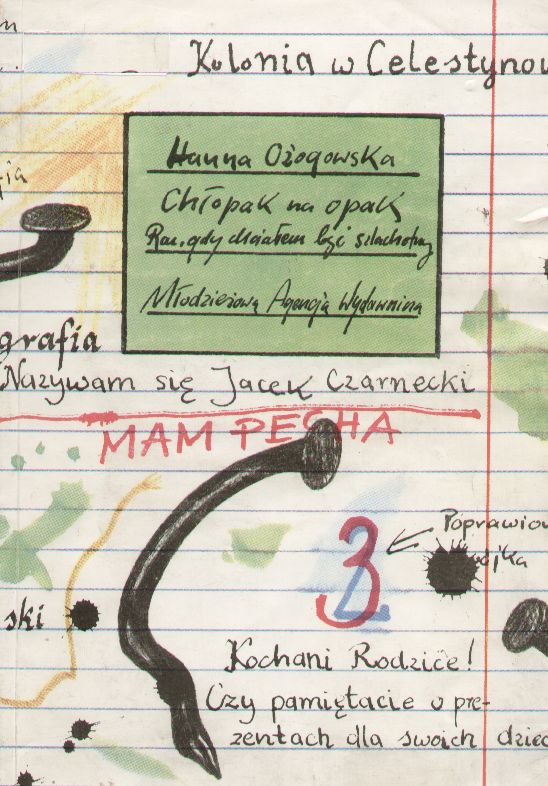 Kolonia w Celestynow
Hanna Ożogowska
Chłopak na opak
Raz, gdy chciałem być szlachetny
Młodzieżowa Agencja Wydawnicza
grafia
Nazywam się Jacek Czarnecki
MAM PECHA
3
Poprawion
ski
Kochani Rodzice!
Czy pamiętacie o pre-
zentach dla swoich dziec